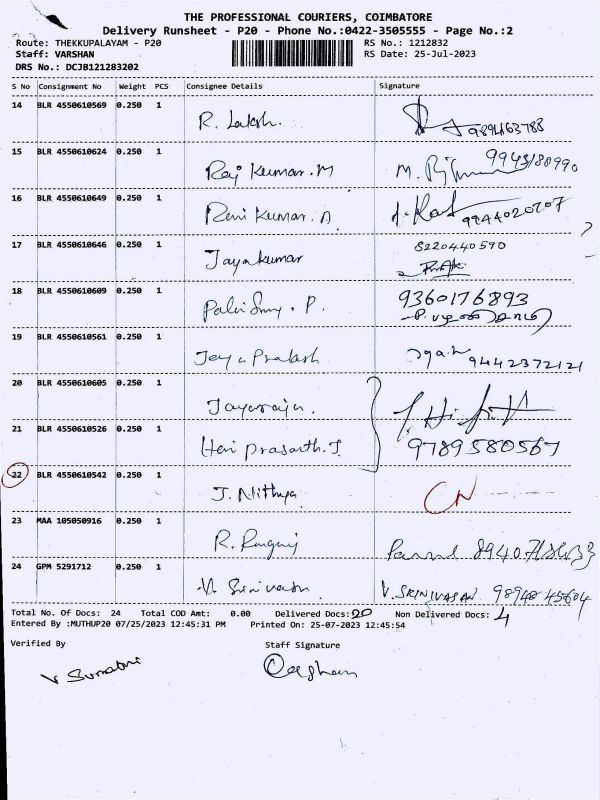 THE PROFESSIONAL COURIERS, COIMBATORE
Delivery Runsheet - P20 - Phone No.:0422-3505555 - Page No.:2
Route: THEKKUPALAYAM - P20 RS No.: 1212832
Staff: VARSHAN RS Date: 25-Jul-2023
DRS No.: DCJB121283202
S No Consignment No Weight PCS Consignee Details Signature
14 BLR 4550610569 0.250 1 R. Laksh.
15 BLR 4550610624 0.250 1 Raj Kumar.M 9943188990
16 BLR 4550610649 0.250 1 Ravi Kumar. A 9944020707
17 BLR 4550610646 0.250 1 Jayakumar 8220440590
18 BLR 4550610609 0.250 1 PalniSmy. P. 9360176893
19 BLR 4550610561 0.250 1 Jaya Prakash 9442372121
20 BLR 4550610605 0.250 1 Jayaraju.
21 BLR 4550610526 0.250 1 Hari Prasanth.J. 9789580567
22 BLR 4550610542 0.250 1 J. Nithya CN
23 MAA 105050916 0.250 1 R.
24 GPM 5291712 0.250 1 V. Srinivasan V. SRINIVASAN 98948 45604
Total No. Of Docs: 24 Total COD Amt: 0.00 Delivered Docs: 20 Non Delivered Docs: 4
Entered By :MUTHUP20 07/25/2023 12:45:31 PM Printed On: 25-07-2023 12:45:54
Verified By Staff Signature